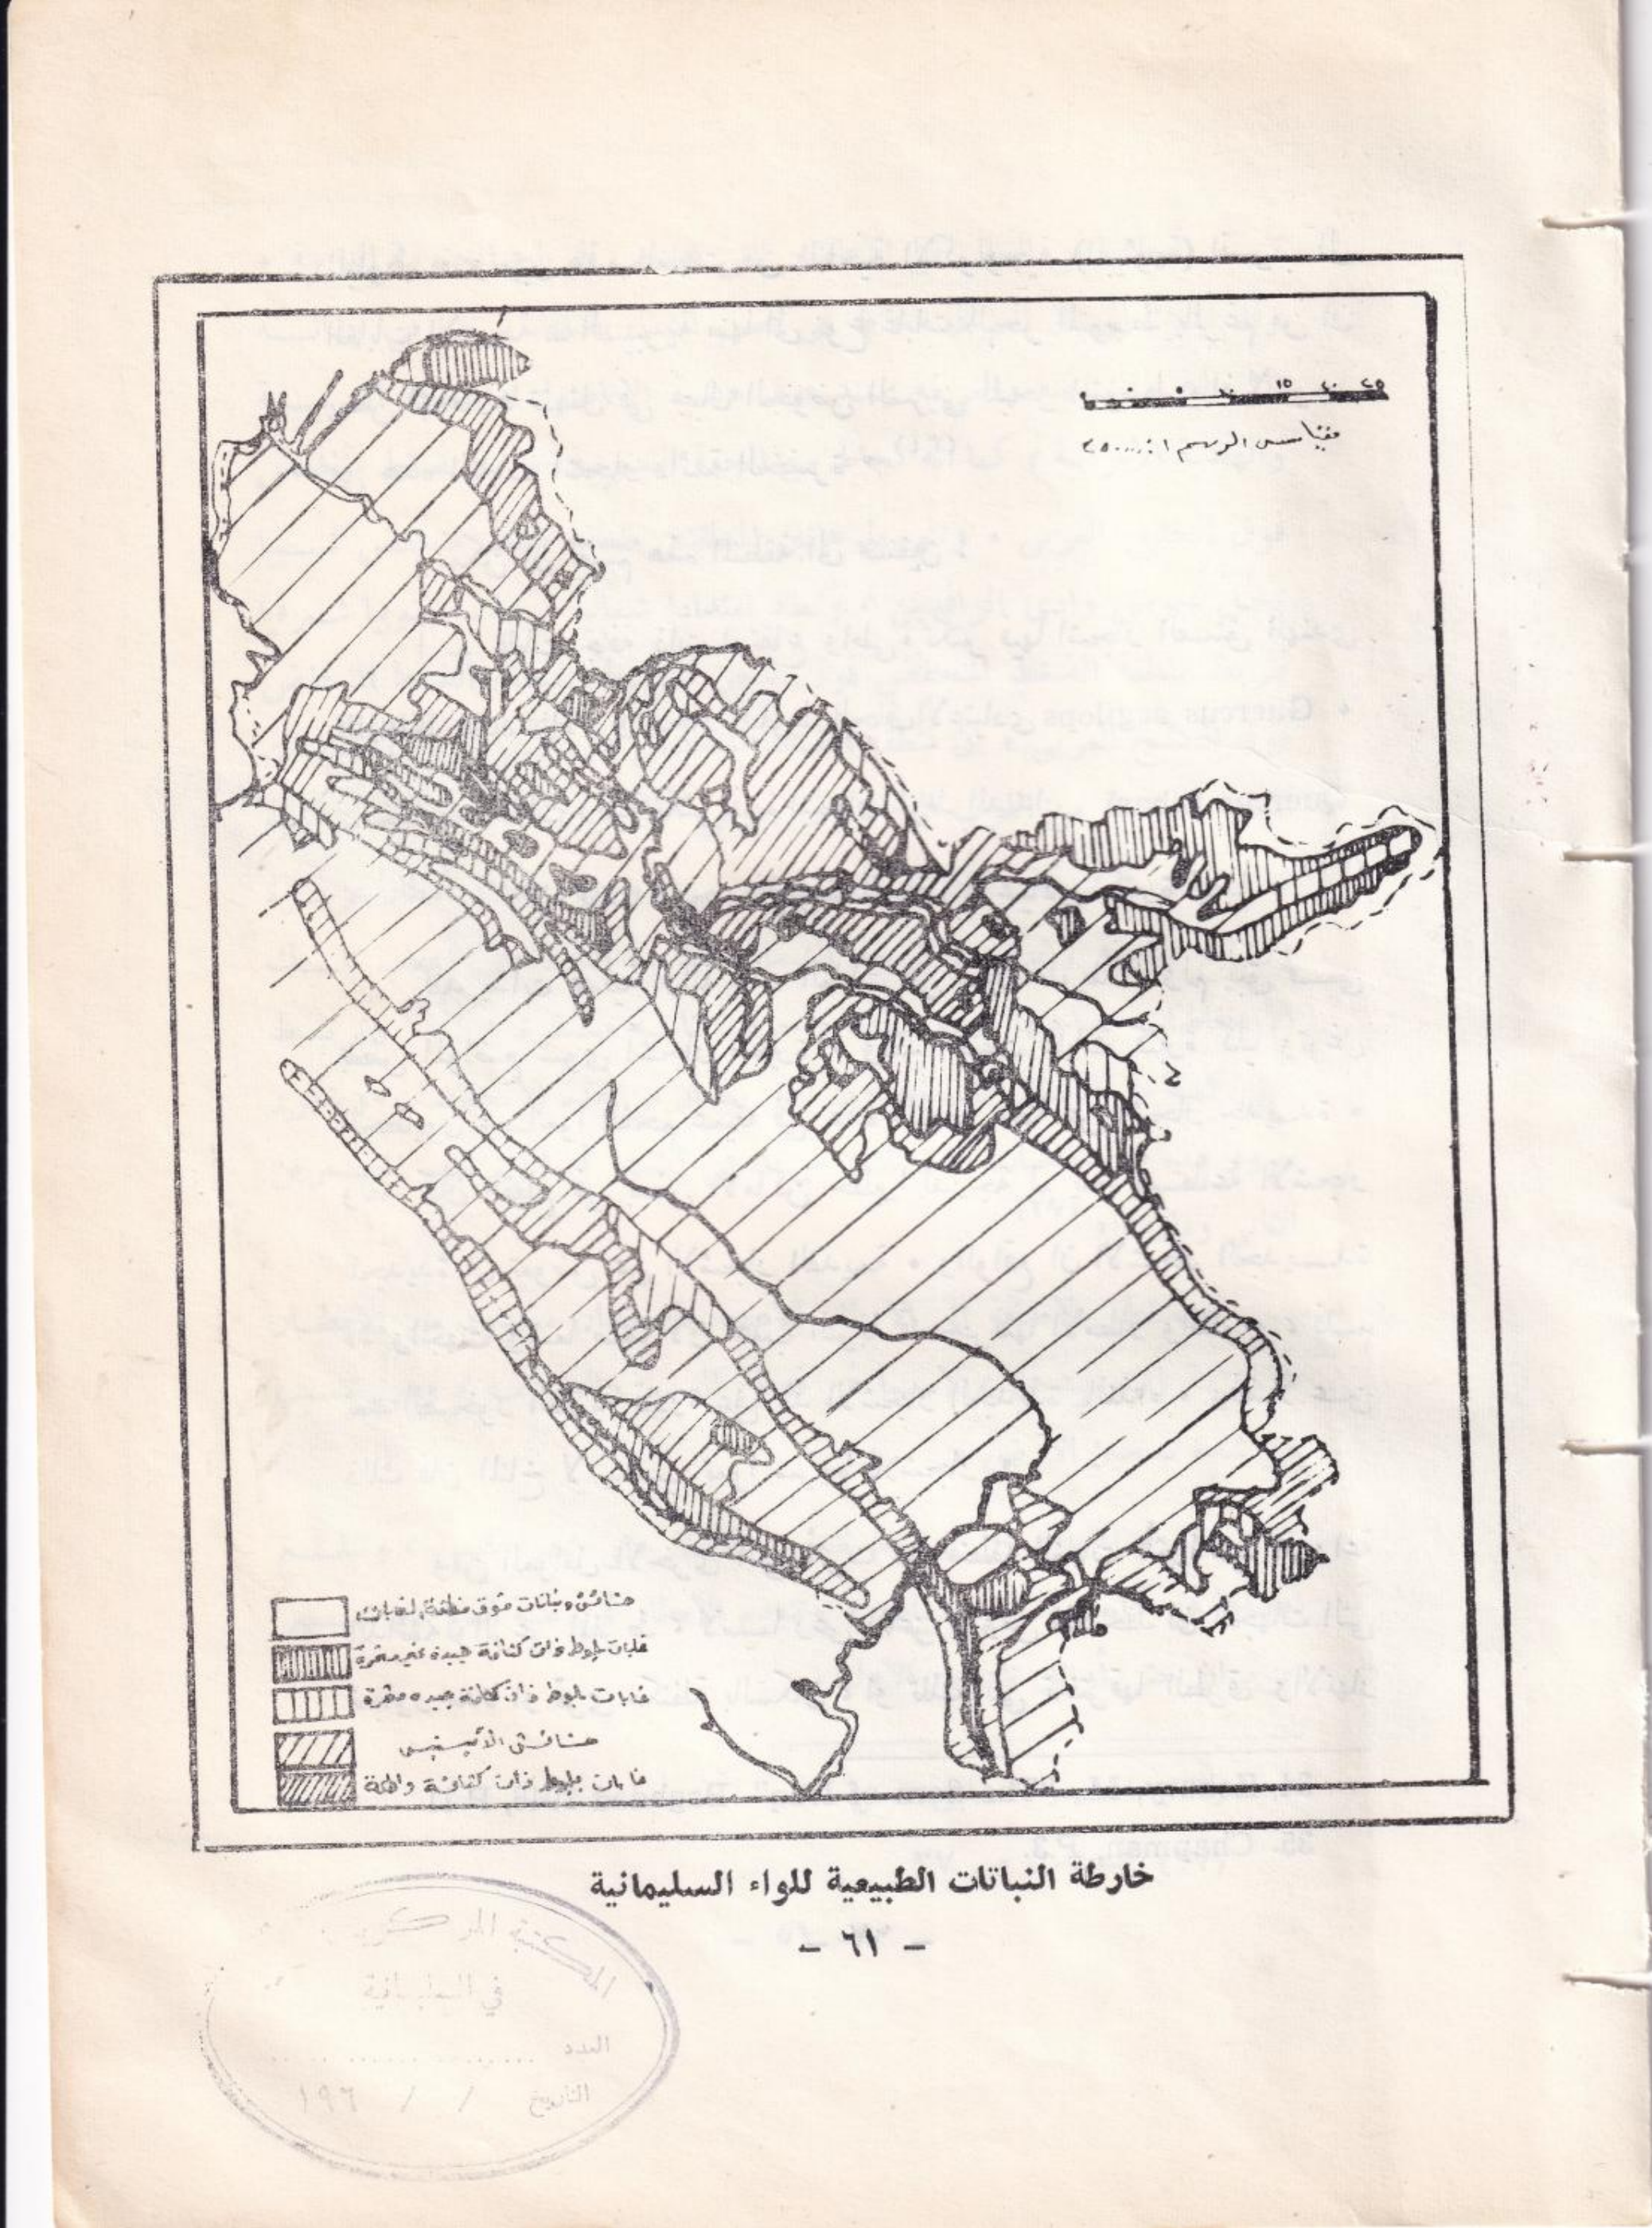 ٥ ١٥ ٢٠ ٢٥
مقياس الرسم ١:
حشائش ونباتات فوق منطقة الغابات
غابات بلوط ذات كثافة جيدة غير مثمرة
غابات بلوط ذات كثافة جيده مثمرة
حشائش الأستبس
غابات بلوط ذات كثافة واطئة
خارطة النباتات الطبيعية للواء السليمانية
– ٦١ –
المكتبة المركزية
في السليمانية
العدد
التاريخ / / ١٩٦